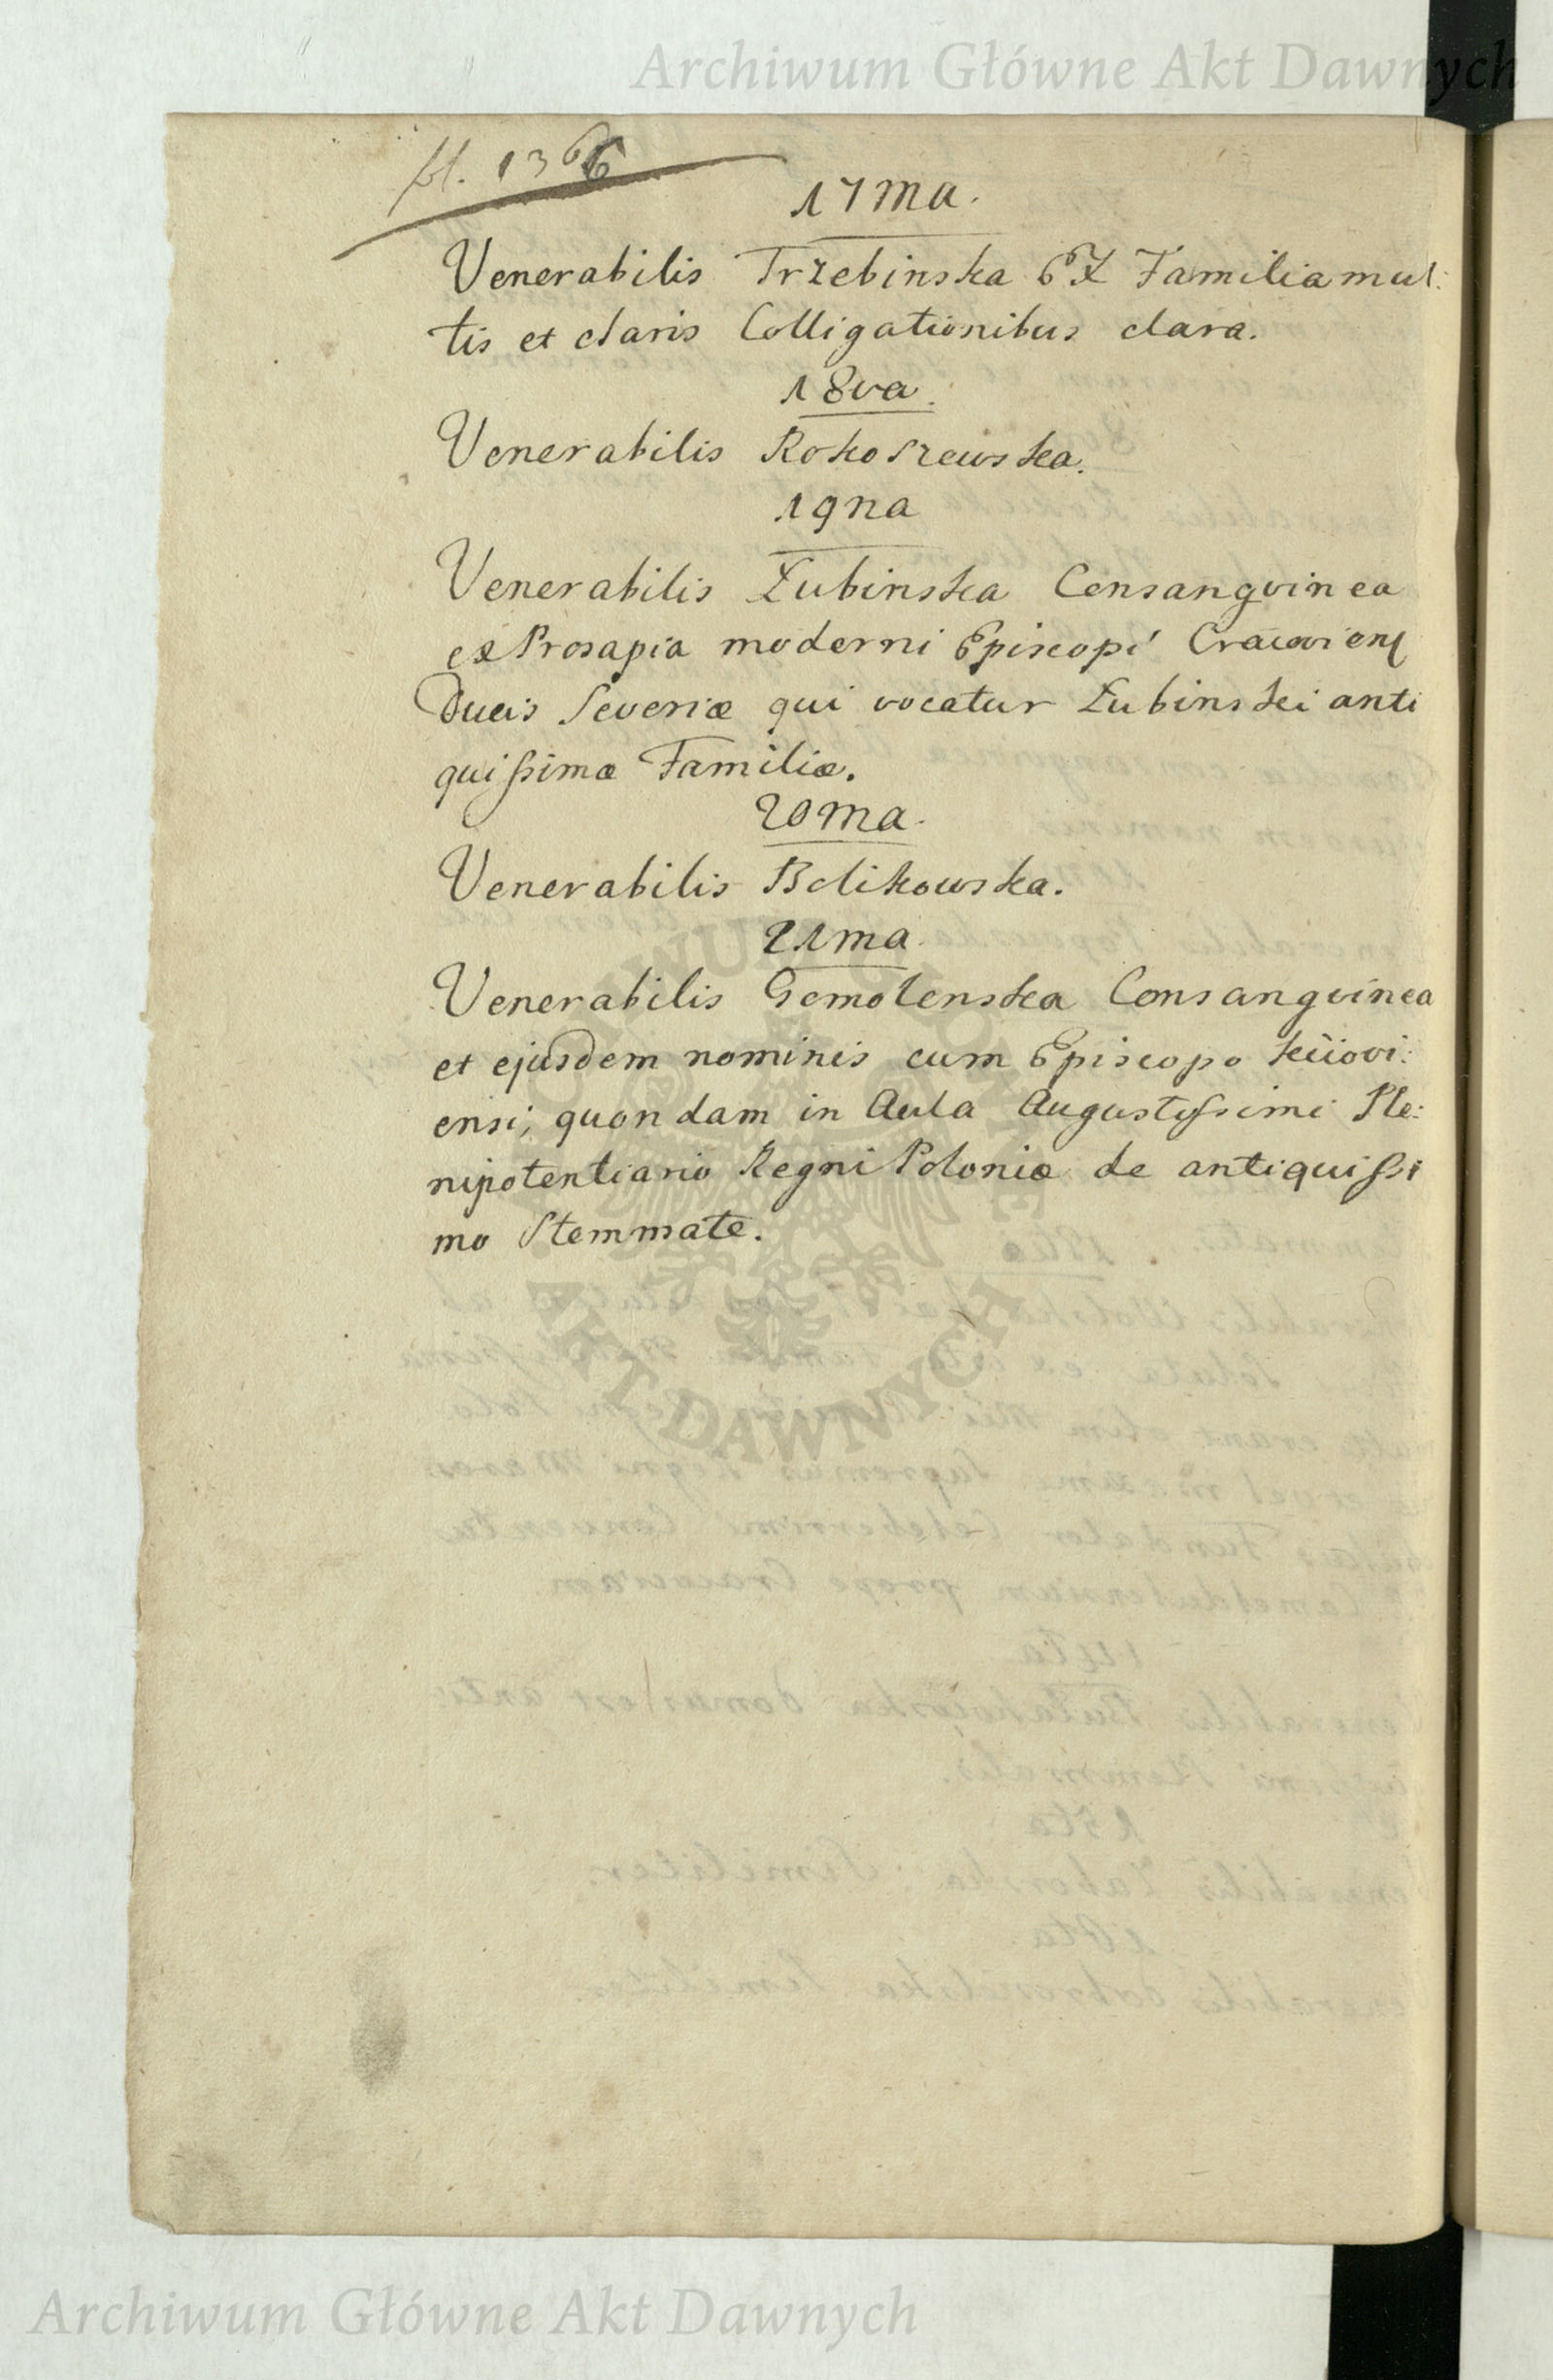 Archiwum Główne Akt Dawnych
fol. 1366
17ma.
Venerabilis Trzebinska Ex Familia mul:
tis et claris Colligationibus clara.
18va.
Venerabilis Rokoszewska.
19na
Venerabilis Łubinska Consangvinea
ex Prosapia moderni Episcopi Cracoviens
Ducis Severiæ qui vocatur Łubinski anti
quissimæ Familiæ.
20ma.
Venerabilis Belikowska.
21ma.
Venerabilis Gomolenska Consangvinea
et ejusdem nominis cum Episcopo Kiiovi:
ensi, quondam in Aula Augustissimi Ple:
nipotentiario Regni Poloniæ de antiquissi
mo Stemmate.
AKT DAWNYCH
Archiwum Główne Akt Dawnych